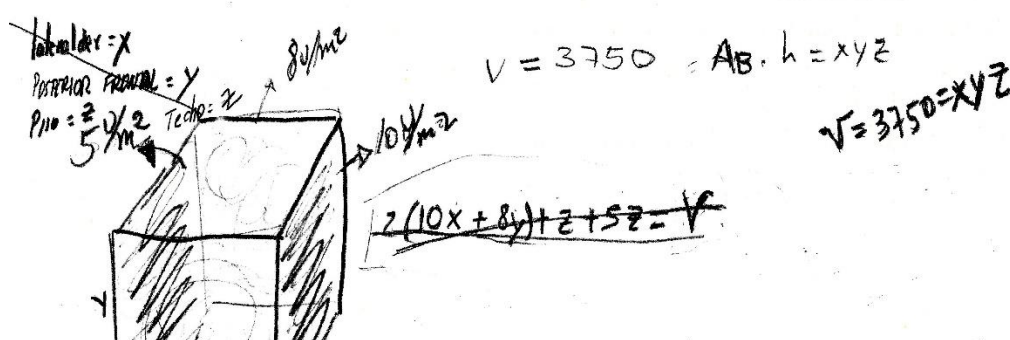 lateral der = X
POSTERIOR FRONTAL = Y
PISO = Z
Techo = Z
5 U/m²
8U/m²
10U/m²
V = 3750 = AB. h = XYZ
V = 3750 = XYZ
2(10X + 8Y) + Z + 5Z = V
Y